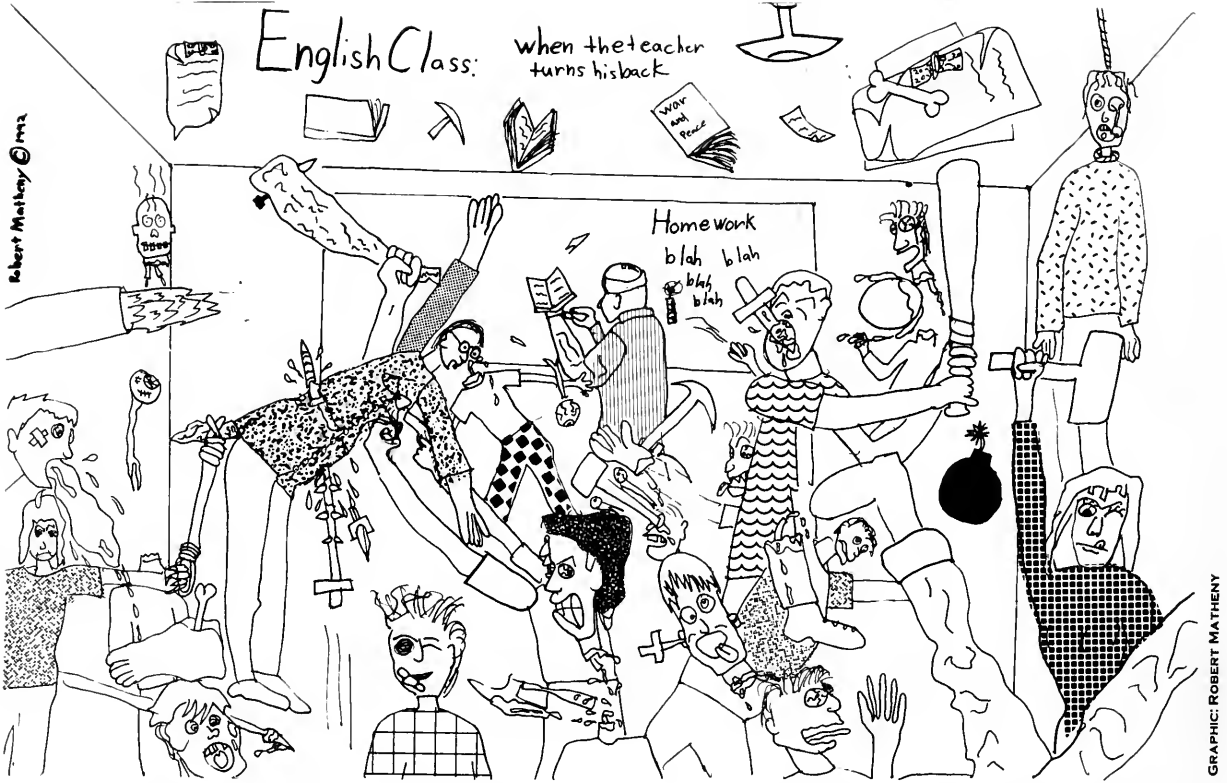 English Class:
when the teacher
turns his back
War
and
Peace
Robert Matheny © 1992
Homework
blah blah
blah
blah
GRAPHIC: ROBERT MATHENY